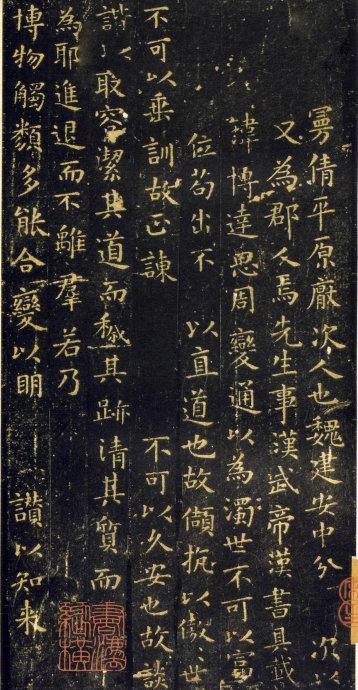 曼倩平原厭次人也魏建安中分 次以
又為郡人焉先生事漢武帝漢書具載
瑋博達思周變通以為濁世不可以富
位苟出不 以直道也故抗以傲世
不可以垂訓故正諫 不可以久安也故談
諧以取容潔其道而穢其跡清其質而
為耶進退而不離羣若乃
博物觸類多能合變以明 讚以知來